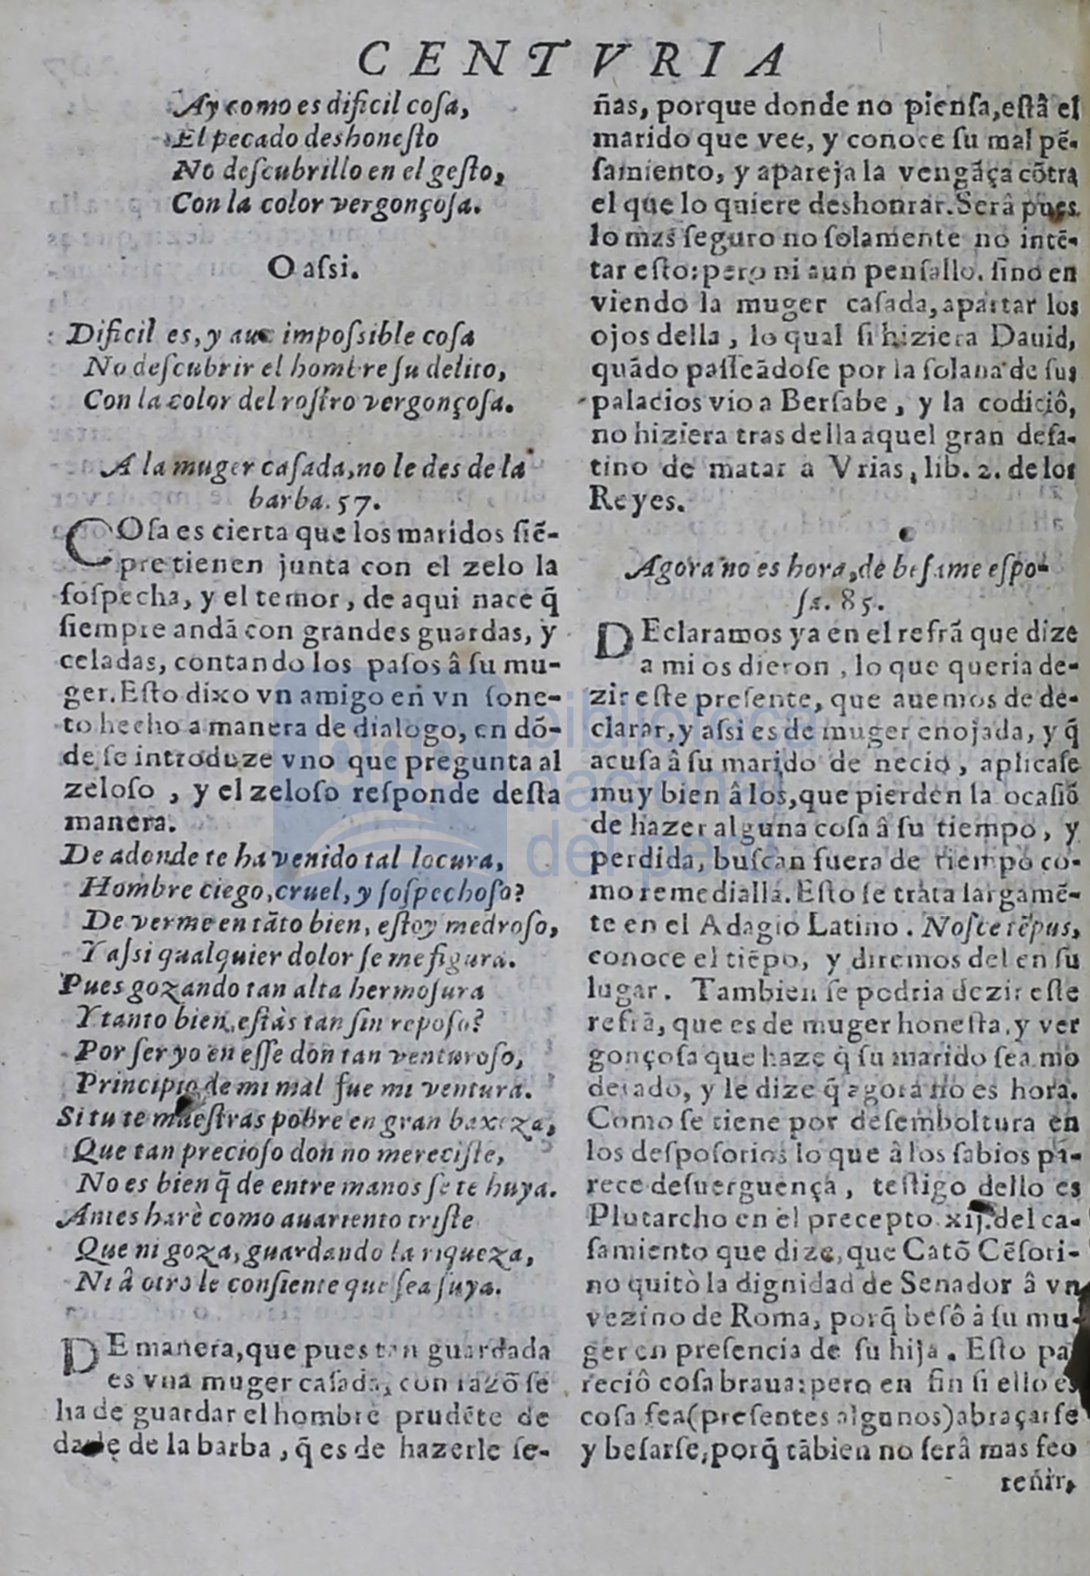 CENTVRIA
Ay como es dificil coſa,
El pecado deshoneſto
No deſcubrillo en el geſto,
Con la color vergonçoſa.
O aſsi.
Dificil es, y aun impoſsible coſa
No deſcubrir el hombre ſu delito,
Con la color del roſtro vergonçoſa.
A la muger caſada, no le des de la
barba. 57.
COſa es cierta que los maridos ſiẽ-
pre tienen junta con el zelo la
ſoſpecha, y el temor, de aqui nace q̃
ſiempre andã con grandes guardas, y
celadas, contando los paſos â ſu mu-
ger. Eſto dixo vn amigo en vn ſone-
to hecho a manera de dialogo, en dõ-
de ſe introduze vno que pregunta al
zeloſo, y el zeloſo reſponde deſta
manera.
De adonde te ha venido tal locura,
Hombre ciego, cruel, y ſoſpechoſo?
De verme en tãto bien, eſtoy medroſo,
Y aſsi qualquier dolor ſe me figura.
Pues gozando tan alta hermoſura
Y tanto bien, eſtàs tan ſin repoſo?
Por ſer yo en eſſe don tan venturoſo,
Principio de mi mal fue mi ventura.
Si tu te mueſtras pobre en gran baxeza,
Que tan precioſo don no mereciſte,
No es bien q̃ de entre manos ſe te huya.
Antes harè como auariento triſte
Que ni goza, guardando la riqueza,
Ni â otro le conſiente que ſea ſuya.
DE manera, que pues tan guardada
es vna muger caſada, con razõ ſe
ha de guardar el hombre prudẽte de
darle de la barba, q̃ es de hazerle ſe-
ñas, porque donde no pienſa, eſtâ el
marido que vee, y conoce ſu mal pẽ-
ſamiento, y apareja la vengãça cõtra
el que lo quiere deshonrar. Serâ pues
lo mas ſeguro no ſolamente no intẽ-
tar eſto: pero ni aun penſallo. ſino en
viendo la muger caſada, apartar los
ojos della, lo qual ſi hiziera Dauid,
quãdo paſſeãdoſe por la ſolana de ſus
palacios vio a Berſabe, y la codiciô,
no hiziera tras della aquel gran deſa-
tino de matar a Vrias, lib. 2. de los
Reyes.
Agora no es hora, de beſame eſpo-
ſa. 85.
DEclaramos ya en el refrã que dize
a mi os dieron, lo que queria de-
zir eſte preſente, que auemos de de-
clarar, y aſsi es de muger enojada, y q̃
acuſa â ſu marido de necio, aplicaſe
muy bien â los, que pierden la ocaſiõ
de hazer alguna coſa â ſu tiempo, y
perdida, buſcan fuera de tiempo co-
mo remedialla. Eſto ſe trata largamẽ-
te en el Adagio Latino. Noſce tẽpus,
conoce el tiẽpo, y diremos del en ſu
lugar. Tambien ſe podria dezir eſte
refrã, que es de muger honeſta, y ver
gonçoſa que haze q̃ ſu marido ſea mo
derado, y le dize q̃ agora no es hora.
Como ſe tiene por deſemboltura en
los deſpoſorios lo que â los ſabios pa-
rece deſuerguença, teſtigo dello es
Plutarcho en el precepto xij. del ca-
ſamiento que dize, que Catõ Cẽſori-
no quitò la dignidad de Senador â vn
vezino de Roma, porq̃ beſô à ſu mu-
ger en preſencia de ſu hija. Eſto pa
reciô coſa braua: pero en fin ſi ello es
coſa fea (preſentes algunos) abraçarſe
y beſarſe, porq̃ tãbien no ſerâ mas feo
reñir,
biblioteca
nacional
del perú
bnp